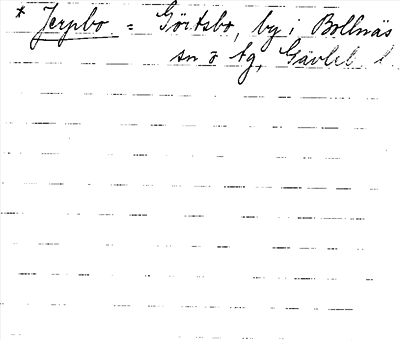 * Jerpbo = Görtsbo, by i Bollnäs
sn o tg, Gävleb l.